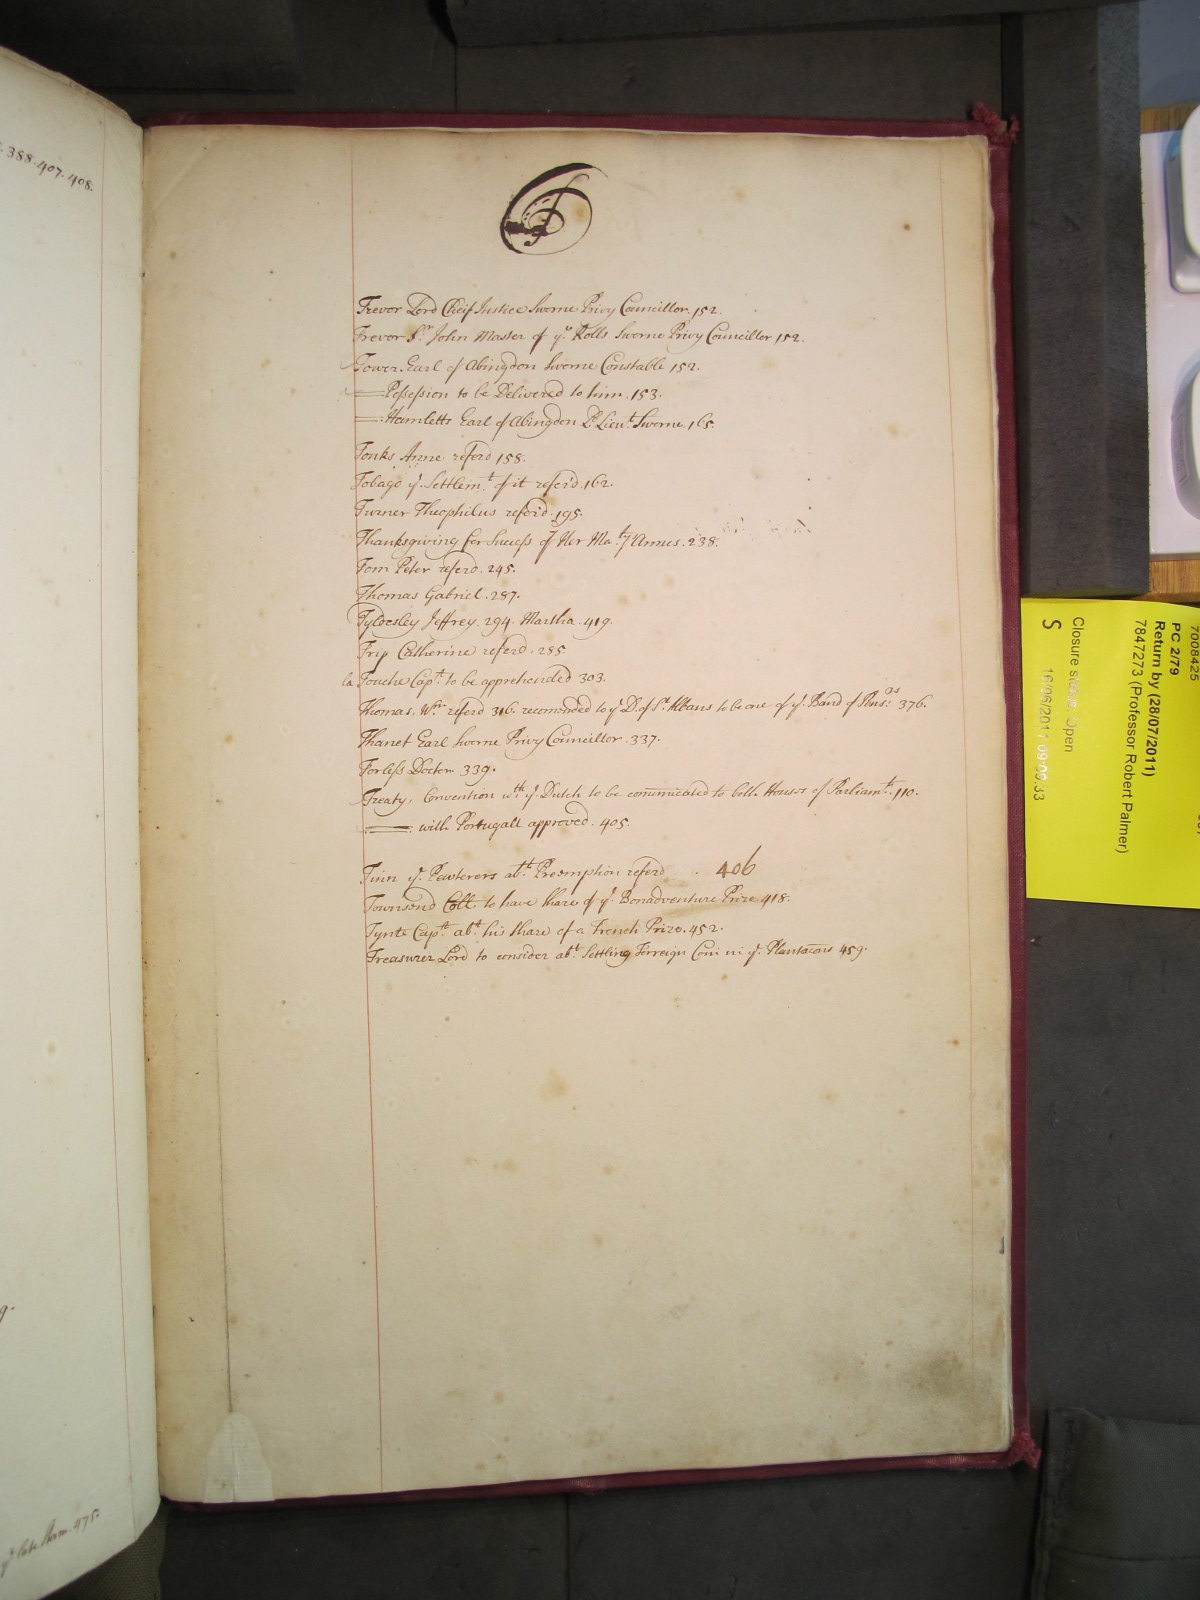 388. 407. 408.
T
Trevor Lord Cheif Justice Sworne Privy Councillor. 152.
Trevor Sr. John Master of ye Rolls Sworne Privy Councillor 152.
Tower. Earl of Abingdon Sworne Constable 152.
Possession to be Delivered to him. 153.
Hamletts Earl of Abingdon Ld. Lieut. Sworne. 165.
Tonks Anne referd 158.
Tobago ye. Settlemt. of it refer'd. 162.
Turner Theophilus refer'd. 195.
Thanksgiving for Success of Her Ma.tys Armes. 238.
Tom Peter referd. 245.
Thomas Gabriel. 287.
Tyldesley Jeffrey. 294. Martha. 419.
Trip Catherine referd. 285.
la Touche Capt. to be apprehended 303.
Thomas, Wm. referd 316. recomended to ye D. of St. Albans to be one of ye. Band of Penrs. 376.
Thanet Earl Sworne Privy Councillor. 337.
Torless Doctor. 339.
Treaty, Convention wth ye. Dutch to be communicated to both Houses of Parliamt. 110.
with Portugall approved. 405.
Tinn ye. Pewterers abt. Preemption referd 406
Townsend Coll. to have share of ye. Bonadventure Prize 418.
Tynte Capt. abt. his share of a French Prize. 452.
Treasurer Lord to consider abt. Settling Forreign Coin in ye. Plantacons 459.
9.
ye late 475.
7008425
PC 2/79
Return by (28/07/2011)
7847273 (Professor Robert Palmer)
Closure status: Open
16/06/2011 09:09:33
S